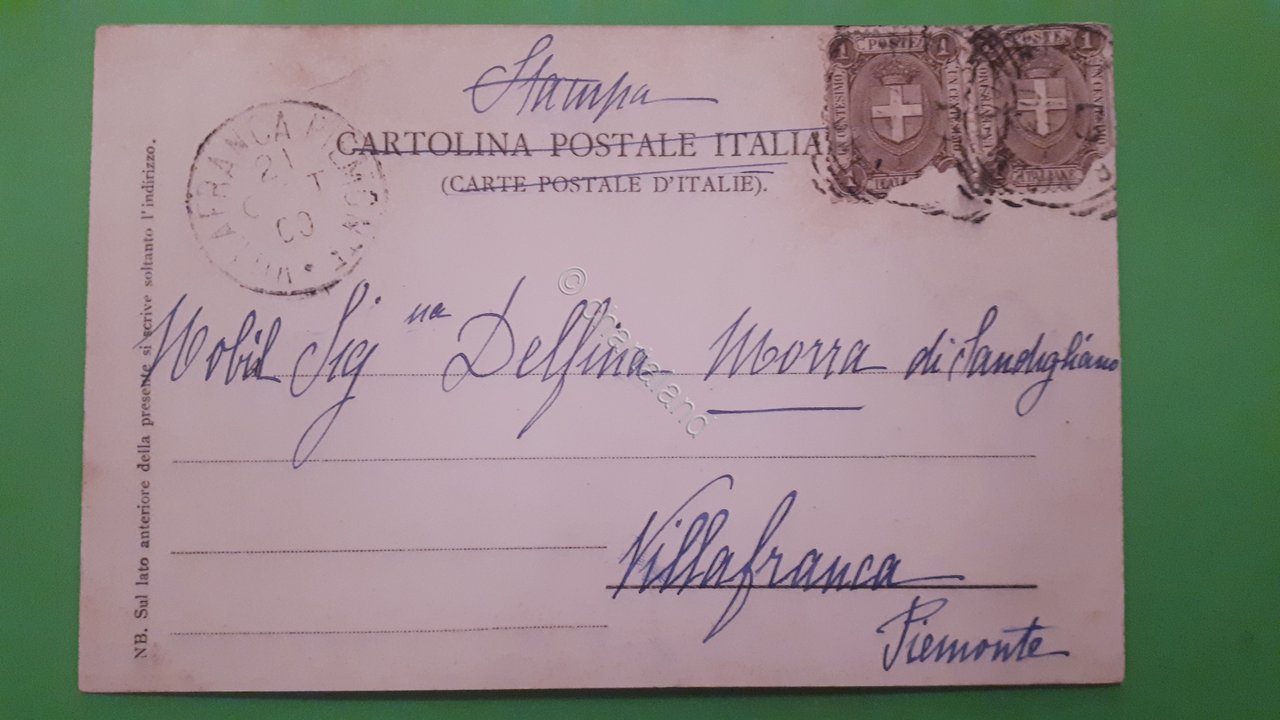 Stampa
CARTOLINA POSTALE ITALIA
(CARTE POSTALE D'ITALIE).
1 POSTE 1
UN CENTESIMO
POSTE 1
UN CENTESIMO
ITALIANE
VILLAFRANCA PIEMONTE
21
00
Nobil Signa Delfina Morra di Sandigliano
Villafranca
Piemonte
NB. Sul lato anteriore della presente si scrive soltanto l'indirizzo.
© charialand